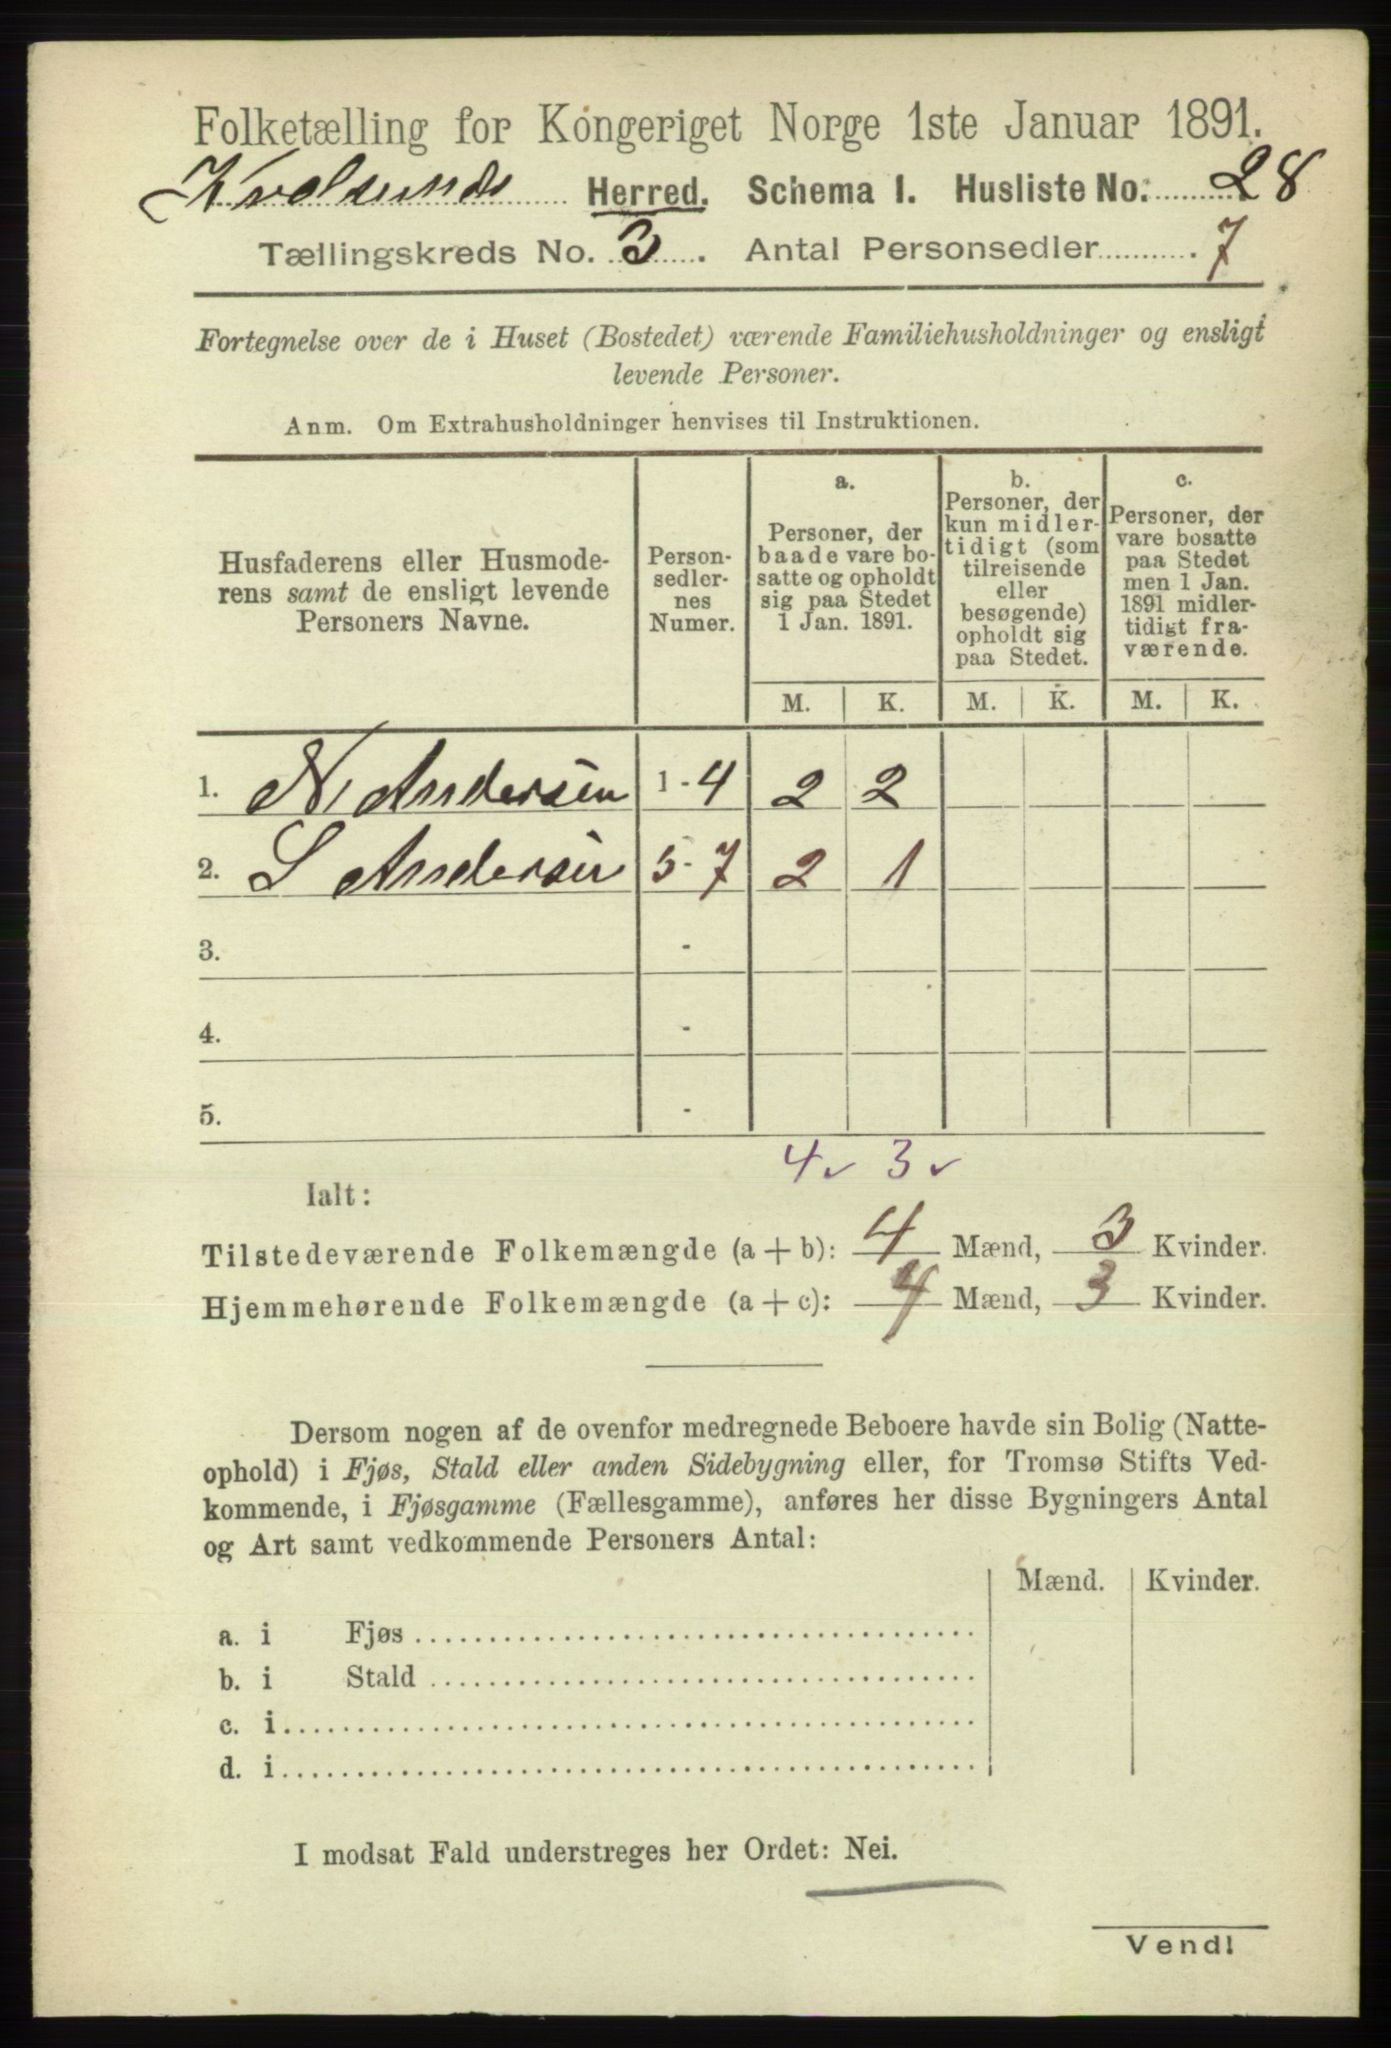 Folketælling for Kongeriget Norge 1ste Januar 1891.
Kvalsunds Herred. Schema 1. Husliste No. 28
Tællingskreds No. 3. Antal Personsedler 7
Fortegnelse over de i Huset (Bostedet) værende Familiehusholdninger og ensligt
levende Personer.
Anm. Om Extrahusholdninger henvises til Instruktionen.
Husfaderens eller Husmode-
rens samt de ensligt levende
Personers Navne.
Person-
sedler-
nes
Numer.
a.
Personer, der
baade vare bo-
satte og opholdt
sig paa Stedet
1 Jan. 1891.
b.
Personer, der
kun midler-
tidigt (som
tilreisende
eller
besøgende)
opholdt sig
paa Stedet.
c.
Personer, der
vare bosatte
paa Stedet
men 1 Jan.
1891 midler-
tidigt fra-
værende.
M. K. M. K. M. K.
1. N. Andersen 1-4 2 2
2. S Andersen 5-7 2 1
3. -
4. -
5. -
4 ✓ 3 ✓
Ialt:
Tilstedeværende Folkemængde (a + b): 4 Mænd, 3 Kvinder.
Hjemmehørende Folkemængde (a + c): 4 Mænd, 3 Kvinder.
Dersom nogen af de ovenfor medregnede Beboere havde sin Bolig (Natte-
ophold) i Fjøs, Stald eller anden Sidebygning eller, for Tromsø Stifts Ved-
kommende, i Fjøsgamme (Fællesgamme), anføres her disse Bygningers Antal
og Art samt vedkommende Personers Antal:
Mænd. Kvinder.
a. i Fjøs
b. i Stald
c. i
d. i
I modsat Fald understreges her Ordet: Nei.
Vend!